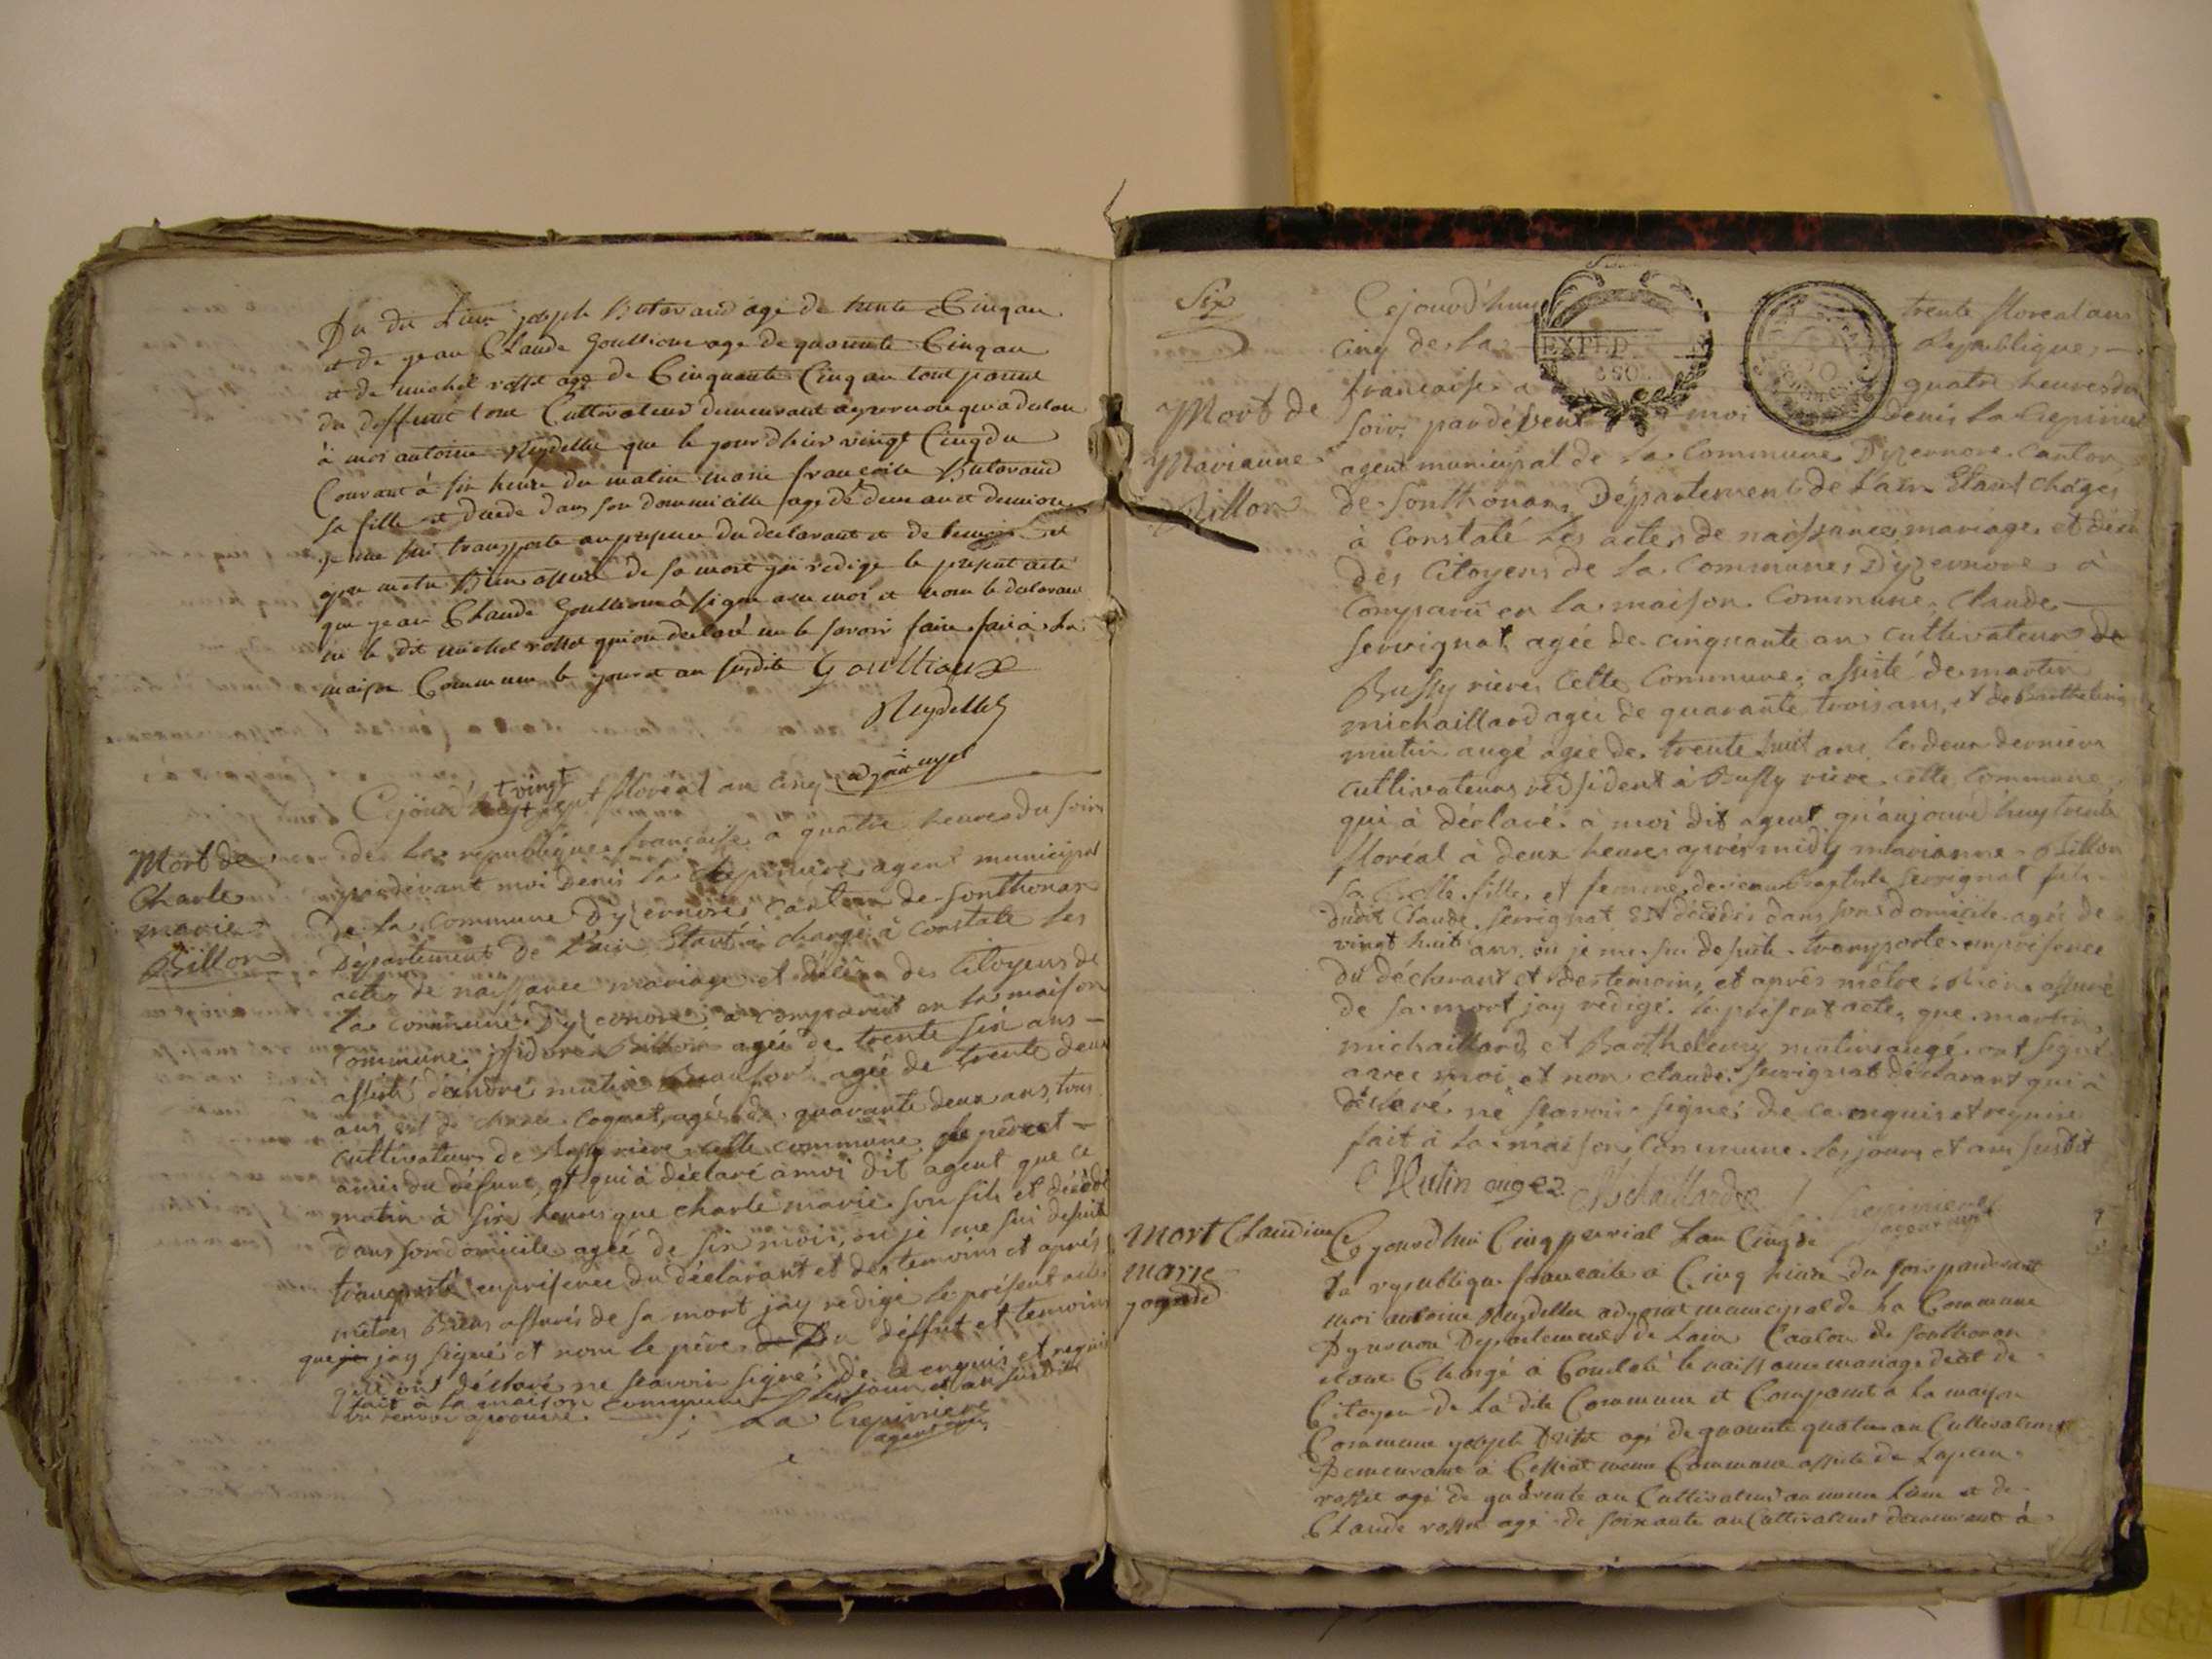 Du dit Lieu joseph Butavand agé de trente Cinq an
et de jean Claude Goullioux age de quarante Cinq an
et de michel rosset age de Cinquante Cinq an tout parant
du deffunt tout Cultivateur demeurant a yzernore qui a declare
à moi antoine Reydellet que le jour dhier vingt Cinq du
Courant à six heure du matin marie francoise Butavand
sa fille et decede dans son dommicille age de deux an et demi ou
je me sui transporte au presence du declarant et de temoin et
apre metre Bien assure de sa mort jai redige le present acte
que jean Claude Goullioux à signe avec moi et non le declarant
ni le dit michel rosset qui on declaré ne le savoir faire fait à la
maison Commune le jour et an susdits Goullioux
Reydellet
adjoint mpal
Cejourd'huy vingt sept floréal an cinq
Mort de
Charle
marie
Billon
de la republique francaise a quatre heures du soir
pardevant moi Denis la Crepiniere agent municipal
de la commune Dyzernore canton de Sonthonax
Département de l'ain Etant chargé à constaté les
actes de naissance mariage et décès des Citoyens de
la commune Dyzernore, a comparut en la maison
commune isidore Billon agée de trente six ans
assisté d'andré mutin agée de trente deux
ans, et de Coquet, agée de quarante deux ans, tous
cultivateurs de Bussy riere cette commune le père et
amis du défunt, et qui à déclaré à moi dit agent que ce
matin à six heures que charle marie son fils et décédé
dans son domicile ageé de six mois, ou je me sui desuite
transporté en présence du déclarant et des temoins et aprés
mêtres Biens assurés de sa mort jay redigé le présent acte
que jay signé et nom le père Du déffunt et temoins
qui ont déclaré ne scavoir signé de ce enquis et requis
fait à la maison commune les jour et an susdits
La Crepiniere
agent mpal
Six
Cejourd'huy trente floreal an
EXPED.
cinq de la Republique
francaise a quatre heures du
Mort de
Marianne
Billon
soir, pardévent moi Denis la Crepiniere
agent municipal de la Commune Dyzernore Canton
de Sonthonax, Département de L'ain Etant chargés
à constaté les actes de naissance, mariage, et décès
des Citoyens de la Commune Dyzernore, à
Comparû en la maison Commune Claude
Servignat agée de cinquante an cultivateur de
Bussy riere Cette Commune, assisté de martin
michaillard agée de quarante trois ans, et de Barthelemy
mutin augé agée de trente huit ans, les deux derniers
cultivateurs réssident à Bussy riere cette commune,
qui à déclaré à moi dit agent qu'aujourd'huy trente
floréal à deux heures après midy marianne Billon
sa Belle fille, et femme de jean Baptiste Servignat fils
dudit Claude Servignat Est décédés dans son domicile agée de
vingt huit ans, ou je me sui de suite transporté en présence
du déclarant et des temoins, et après mêtre Bien assuré
de sa mort jay redigé le présent acte, que martin
michaillard, et Barthelemy mutin augé ont signé
avec moi et non claude Servignat déclarant qui à
déclaré ne scavoir signé de ce enquis et requis
fait à la maison Commune les jour et an susdit
Mutin auge Michaillard Crepiniere
agent mpal
Mort Claudine
marie
Ce jourdhui Cinq perrial Lan Cinq de
la republique francaise à Cinq heure du soir pardevant
moi antoine Reydellet adjoint municipal de La Commune
Dyzernore Departement de Lain Canton de Sonthonax
etant Chargé à Constaté le naissance mariage décé de
Citoyen de la dite Commune et Comparut à la mayson
Commune joseph agé de quarante quatre an Cultivateur
Demeurant à Cessiat meme Commune assisté de
rosset agé de quarente an Cultivateur au meme Lieu et de
Claude rosset agé de soixante an Cultivateur demeurant à